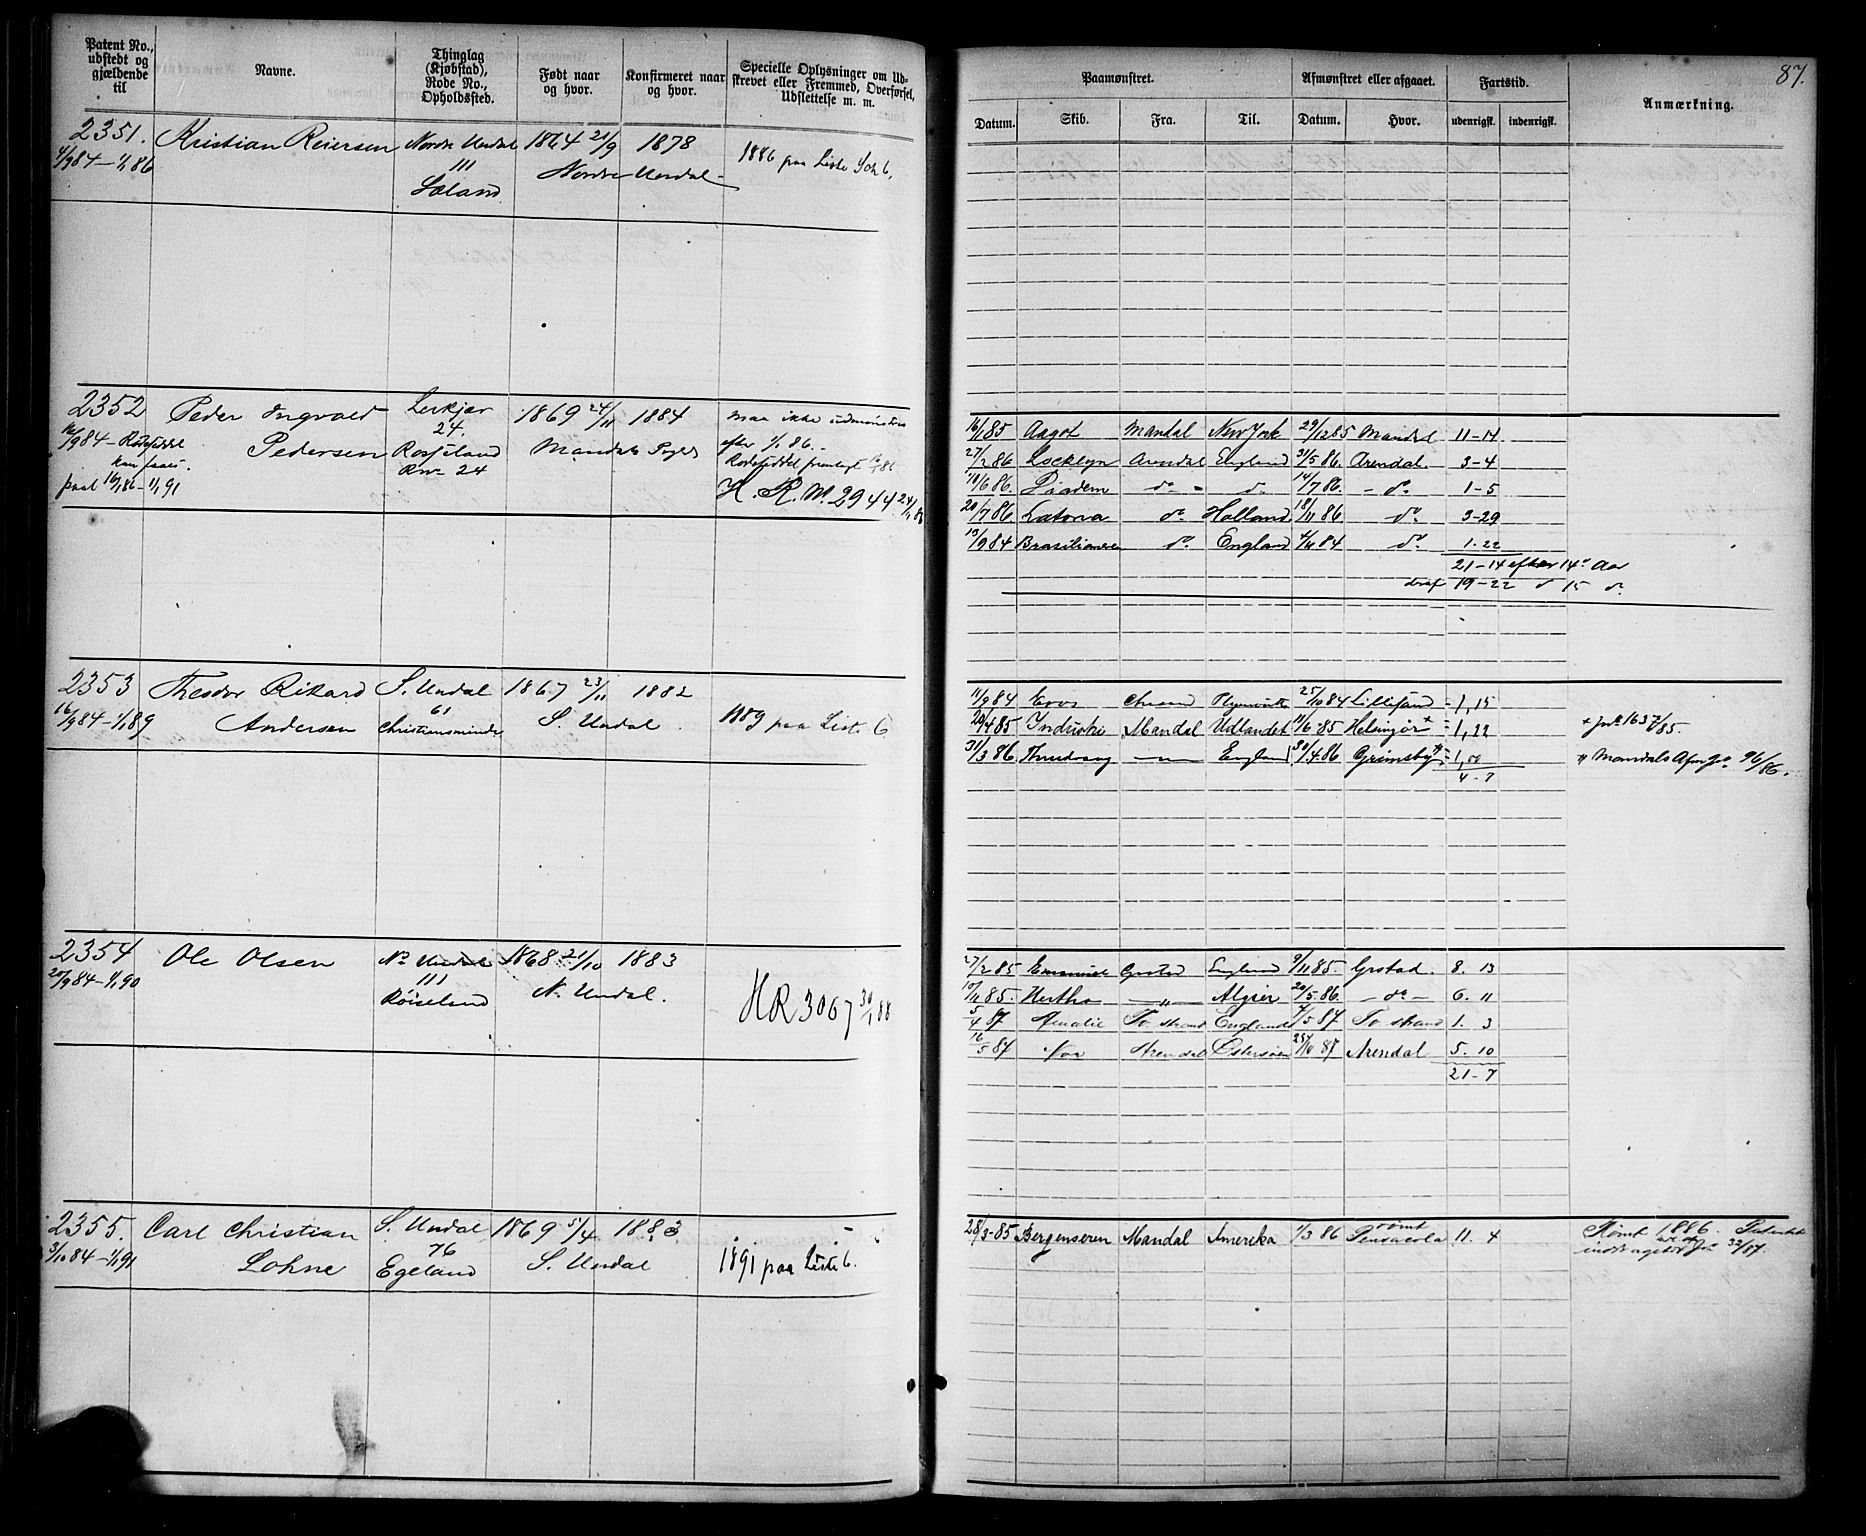 87.
Patent No., udstedt og gjældende til
Navne.
Thinglag (Kjøbstad), Rode No., Opholdssted.
Født naar og hvor.
Konfirmeret naar og hvor.
Specielle Oplysninger om Udskrevet eller Fremmed, Overførsel, Udslettelse m. m.
Paamønstret.
Afmønstret eller afgaaet.
Fartstid.
Anmærkning.
Datum.
Skib.
Fra.
Til.
Datum.
Hvor.
udenrigsk.
indenrigsk.
2351. Kristian Reiersen Nordre Undal 1864 21/9 1878
1/9 84 – 1/1 86 111 Nordre Undal 1886 paa Liste
2352 Peder Ingvald Lerkjær 1869 24/11 1884 maa ikke udmønstres
24. efter 1/1 86.
Pedersen Rosseland Mandals
Kan faaes. 24
paal 16/1 86 – 1/1 91 H. R. No. 2944 24/1
16/1 85 Aagot Mandal New York 29/12 85 Mandal 11-14
27/2 86 Locklyn Arendal England 31/5 86. Arendal. 3-4
do do 14/7 86. do 1-5
20/7 86 Latona do Holland 18/11 86. do 3-29
13/9 84 Brasilianeren do England 84 do 1-22
21-14 efter 14 Aar
deraf 19-22 15 do
2353 Theodor Rikard S. Undal 1867 23/11 1882
16/9 84 – 1/1 89 Andersen 61 S. Undal 1889 paa Liste 6
Christiansminde
11/9 84 25/10 84 Lillesand 1,15
85 Industri Mandal Udlandet 11/6 85 Helsingør + 1,22 + 1637/85.
31/3 86 England 86 Grimsby Mandals 96/86.
4-7
2354 Ole Olsen No. Undal 1868 21/10 1883
20/9 84 – 1/1 90 111 N. Undal.
Røiseland HR 3067 30/1 88
27/2 85 England 9/11 85. Grstad. 8. 13
85. Hertha – " – Algier 20/5 86. – do – 6. 11
5/4 87 Amalie To strand England 7/5 87 To strand 1. 3
16/5 87 Arendal Østersøen 87 Arendal 5. 10
21-7
2355. Carl Christian S. Undal 1869 5/4 1883
3/10 84 – 1/1 91 76
Lohne Egeland S. Undal 1891 paa Liste 6.
28/3-85 Bergenseren Mandal Amerika 1/3 86 rømt Pensacola 11. 4 Rømt 1886.
32/87.